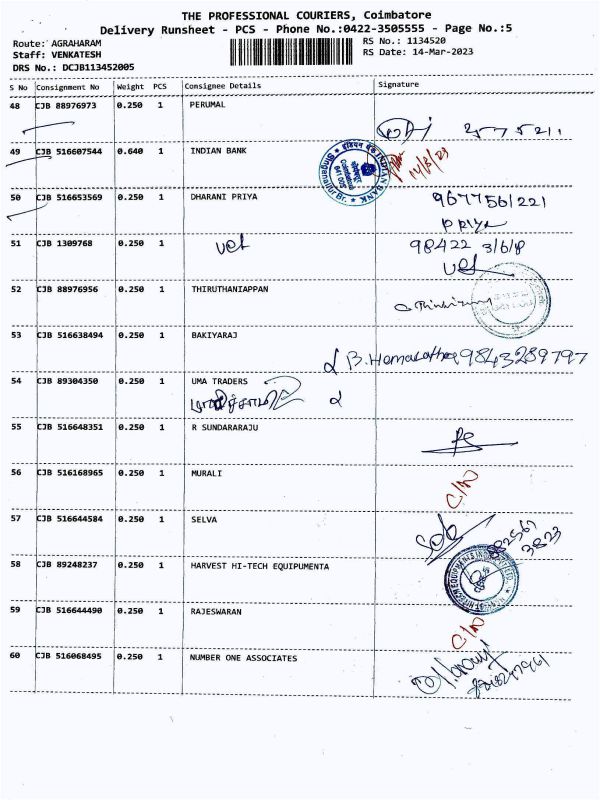 THE PROFESSIONAL COURIERS, Coimbatore
Delivery Runsheet - PCS - Phone No.:0422-3505555 - Page No.:5
Route: AGRAHARAM
RS No.: 1134520
Staff: VENKATESH
RS Date: 14-Mar-2023
DRS No.: DCJB113452005
S No Consignment No Weight PCS Consignee Details Signature
48 CJB 88976973 0.250 1 PERUMAL
49 CJB 516607544 0.640 1 INDIAN BANK
INDIAN BANK
Coimbatore
641 005
14/3/23
50 CJB 516653569 0.250 1 DHARANI PRIYA 9677561221
Priya
51 CJB 1309768 0.250 1 98422 3/6/8
52 CJB 88976956 0.250 1 THIRUTHANIAPPAN
53 CJB 516638494 0.250 1 BAKIYARAJ
B. Hemalatha 9843289797
54 CJB 89304350 0.250 1 UMA TRADERS
55 CJB 516648351 0.250 1 R SUNDARARAJU
56 CJB 516168965 0.250 1 MURALI
C/N
57 CJB 516644584 0.250 1 SELVA
982567
3823
58 CJB 89248237 0.250 1 HARVEST HI-TECH EQUIPUMENTA
59 CJB 516644490 0.250 1 RAJESWARAN
C/N
60 CJB 516068495 0.250 1 NUMBER ONE ASSOCIATES